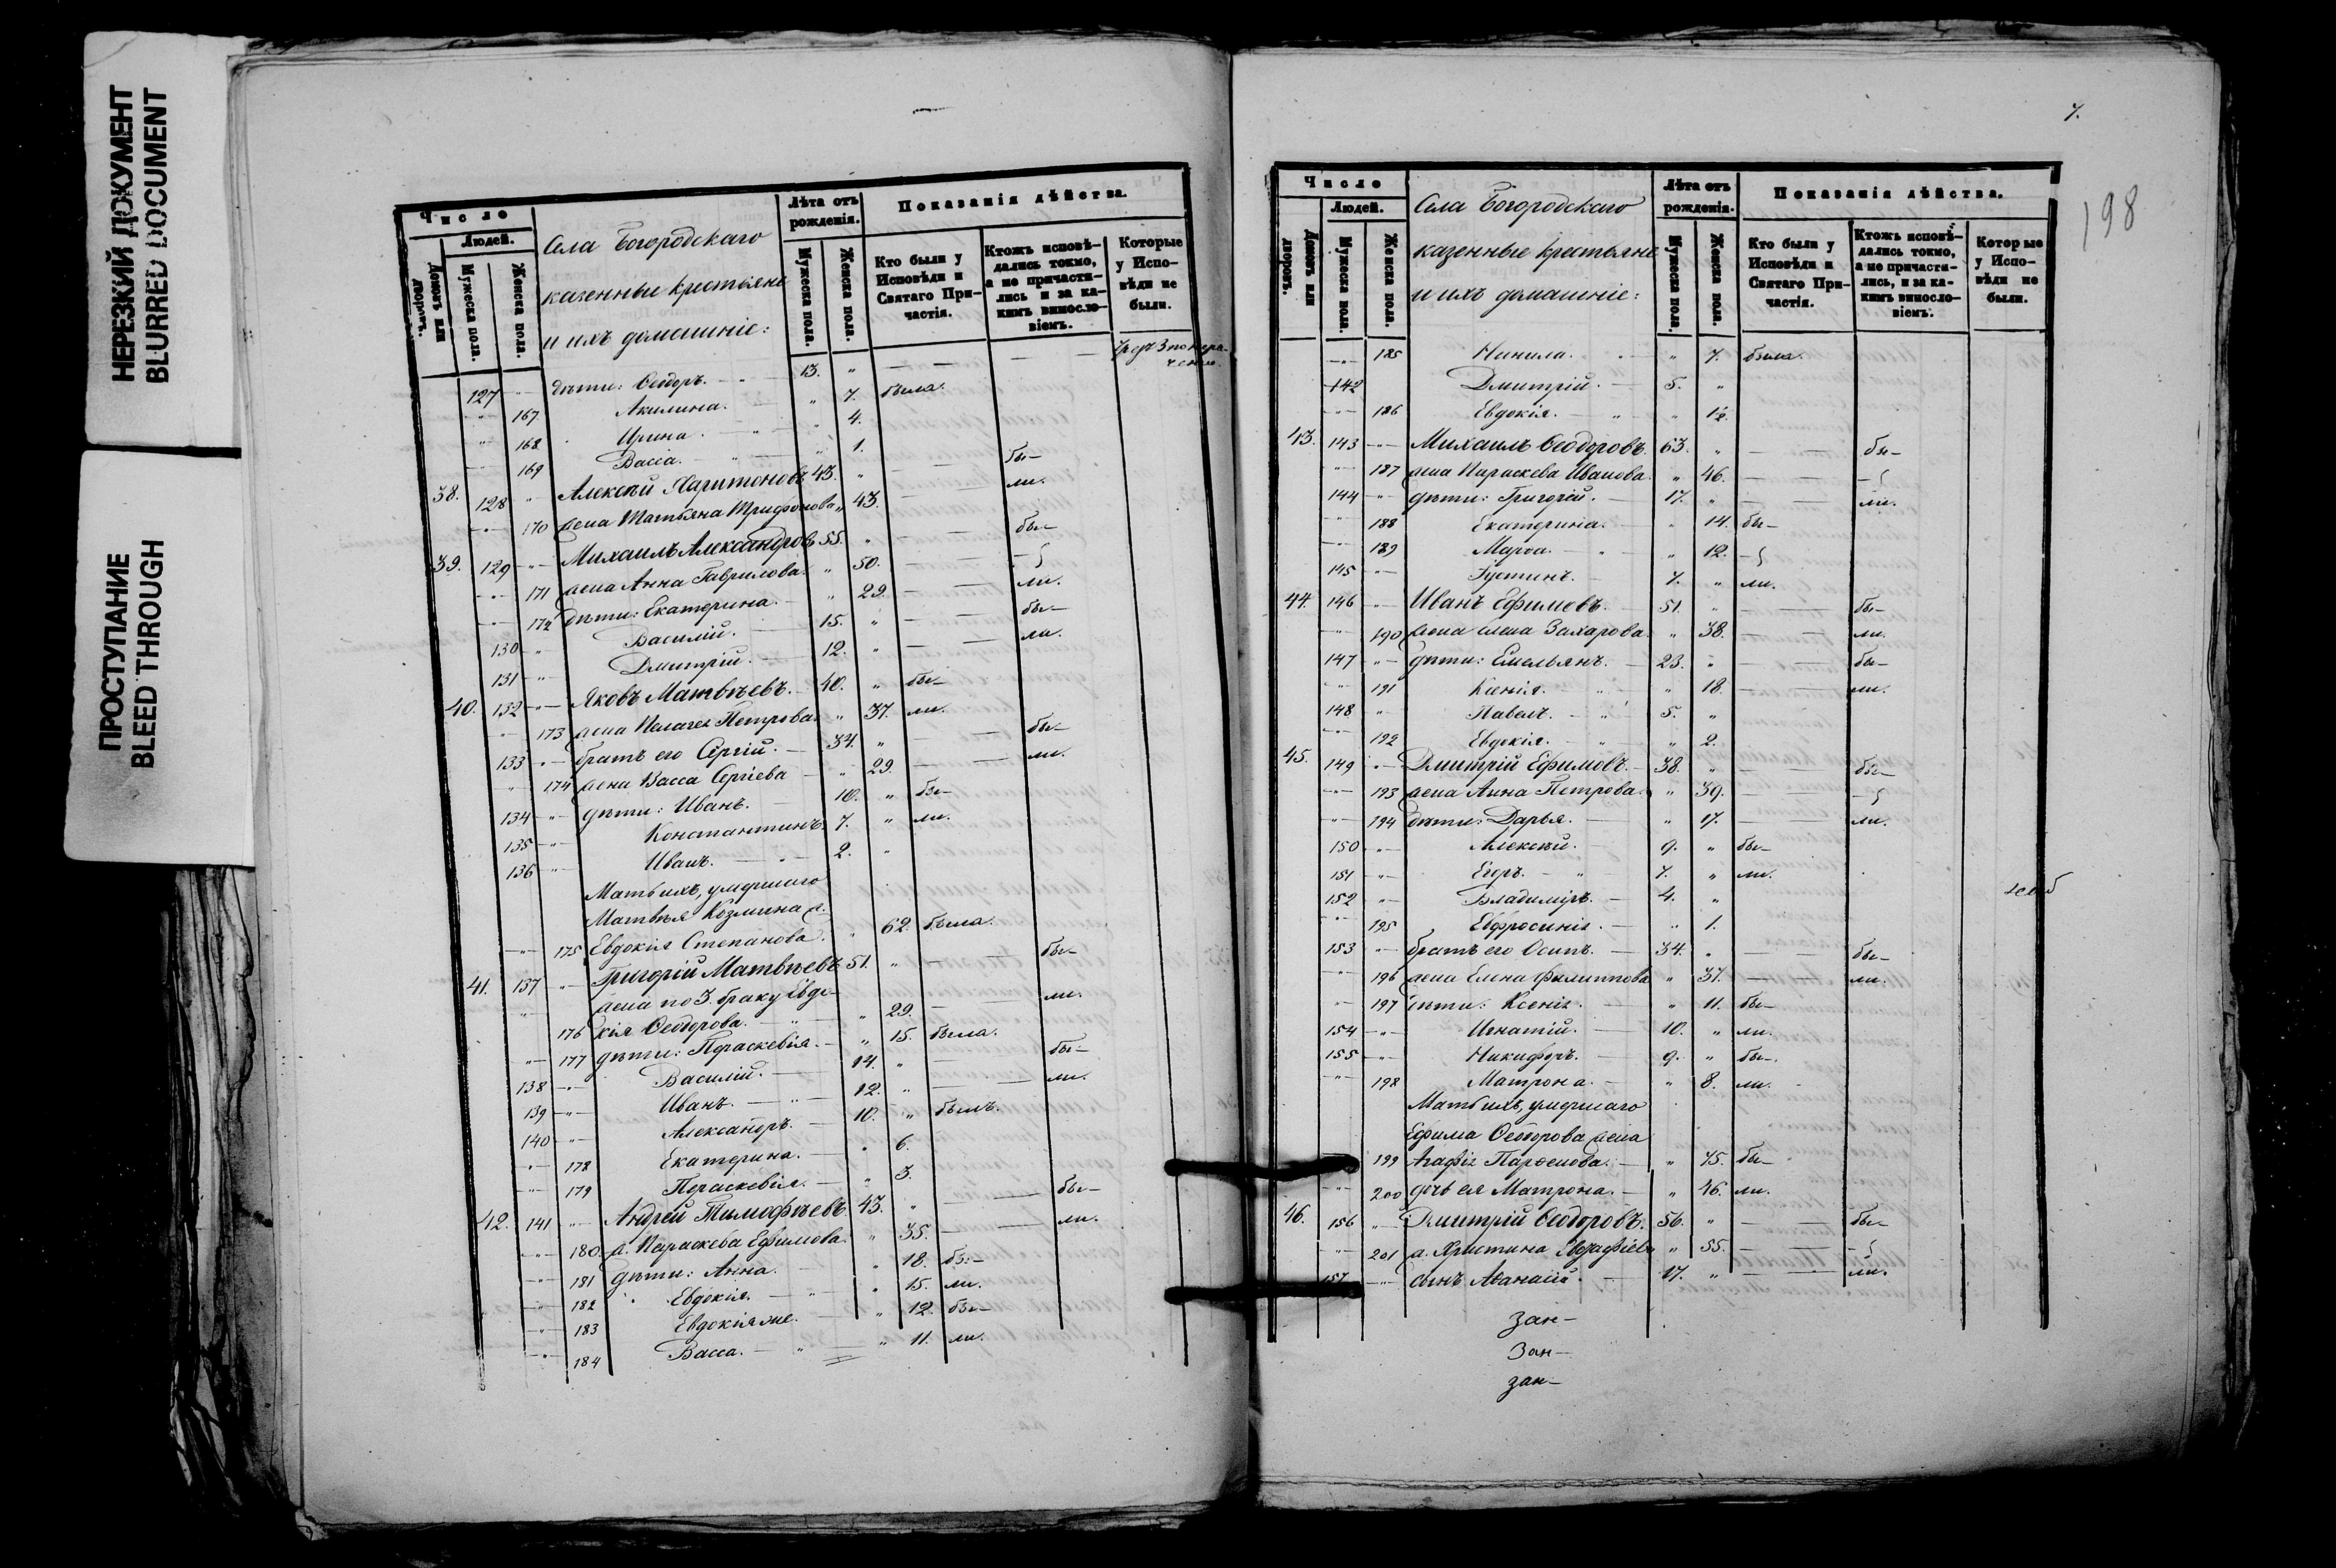 НЕРЕЗКИЙ ДОКУМЕНТ
BLURRED DOCUMENT
ПРОСТУПАНИЕ
BLEED THROUGH
Число
Людей.
Домовъ или дворовъ.
Мужеска пола.
Женска пола.
Села Богородскаго
казенные крестьяне
и ихъ домашніе:
Лѣта отъ рожденія.
Мужеска пола.
Женска пола.
Показанія дѣйства.
Кто были у Исповѣди и Святаго Причастія.
Ктожъ исповѣдались токмо, а не причастились и за какимъ винословіемъ.
Которые у Исповѣди не были.
127 -"- дѣти: Ѳеодоръ. 13. "
-"- 167 Акилина. " 7. была.
-"- 168 Ирина. " 4.
-"- 169 Васса. " 1.
38. 128 " Алексѣй Харитоновъ 43. " — — бы-
-"- 170 жена Татьяна Трифонова " 43. — — ли.
39. 129 -"- Михаилъ Александров 55. " — — бы-
-"- 171 жена Анна Гаврилова. " 50. — —
-"- 172 дѣти: Екатерина. " 29. — — ли.
130 -"- Василій. 15. " — — бы-
131 -"- Дмитрій. 12. " — — ли.
40. 132 -"- Яковъ Матвѣевъ. 40. " бы-
-"- 173 жена Пелагея Петрова. " 37. ли.
133 -"- братъ его Сергій. 34. " — — бы-
-"- 174 жена Васса Сергіева " 29. — — ли.
134 -"- дѣти: Иванъ. 10. " бы-
135 -"- Константинъ. 7. " ли.
136 -"- Иванъ. 2. "
Мать ихъ, умершаго
Матвѣя Козмина ж.
-"- 175 Евдокія Степанова. " 62. была.
41. 137 -"- Григорій Матвѣевъ 51. " — — бы-
жена по 3. браку Евдо-
-"- 176 кія Ѳеодорова. " 29. — — ли.
-"- 177 дѣти: Параскевія. " 15. была.
138 -"- Василій. 14. " — — бы-
139 -"- Иванъ. 12. " — — ли.
140 -"- Александръ. 10. " былъ.
-"- 178 Екатерина. " 6.
-"- 179 Параскевія. " 3.
42. 141 -"- Андрей Тимофѣевъ 43. " — — бы-
-"- 180. ж. Параскева Ефимова. " 35. — — ли.
-"- 181 дѣти: Анна. " 18. бы-
-"- 182 Евдокія. " 15. ли.
-"- 183 Евдокія же. " 12. бы-
-"- 184 Васса. " 11. ли.
7.
198
Число
Людей.
Домовъ или дворовъ.
Мужеска пола.
Женска пола.
Села Богородскаго
казенные крестьяне
и ихъ домашніе:
Лѣта отъ рожденія.
Мужеска пола.
Женска пола.
Показанія дѣйства.
Кто были у Исповѣди и Святаго Причастія.
Ктожъ исповѣдались токмо, а не причастились, и за какимъ винословіемъ.
Которые у Исповѣди не были.
-"- 185 Ненила. " 7. была.
142 Дмитрій. 5. "
-"- 186 Евдокія. " 1½.
43. 143 -"- Михаилъ Ѳеодоровъ. 63. " — — бы-
-"- 187 жена Параскева Иванова. " 46. — —
144 -"- дѣти: Григорій. 17. " — — ли.
-"- 188 Екатерина. " 14. бы-
-"- 189 Марѳа. " 12.
145 -"- Іустинъ. 7. " ли.
44. 146 -"- Иванъ Ефимовъ. 51. " — — бы-
-"- 190 жена Елена Захарова. " 38. — — ли.
147 -"- дѣти: Емельянъ. 23. " — — бы-
-"- 191 Ксенія. " 18. — — ли.
148 " Павелъ. 5. "
-"- 192 Евдокія. " 2.
45. 149 -"- Дмитрій Ефимовъ. 38. " — — бы-
-"- 193 жена Анна Петрова. " 39. — —
-"- 194 дѣти: Дарья. " 17. — — ли.
150 -"- Алексѣй. 9. " бы-
151 -"- Егоръ. 7. " ли.
152 -"- Владиміръ. 4. "
-"- 195 Евфросинія. " 1.
153 -"- братъ его Осипъ. 34. " — — бы-
-"- 196 жена Елена Филиппова " 37. — — ли.
-"- 197 дѣти: Ксенія. " 11. бы-
154 -"- Игнатій. 10. " ли.
155 -"- Никифоръ. 9. " бы-.
-"- 198 Матрона. " 8. ли.
Мать ихъ, умершаго
Ефима Ѳеодорова жена
199 Агафія Парѳенова. " 75. бы-
-"- 200 дочь ея Матрона. " 46. ли.
46. 156 -"- Дмитрій Ѳеодоровъ. 56. " — — бы-
-"- 201 ж. Христина " 55. — —
157 -"- сынъ Аѳанасій. 17. " — — ли.
зан-
Зан-
зан-